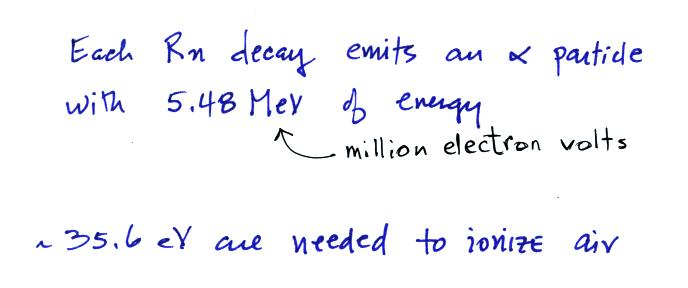 Each Rn decay emits an α particle
with 5.48 MeV of energy
million electron volts
~ 35.6 eV are needed to ionize air